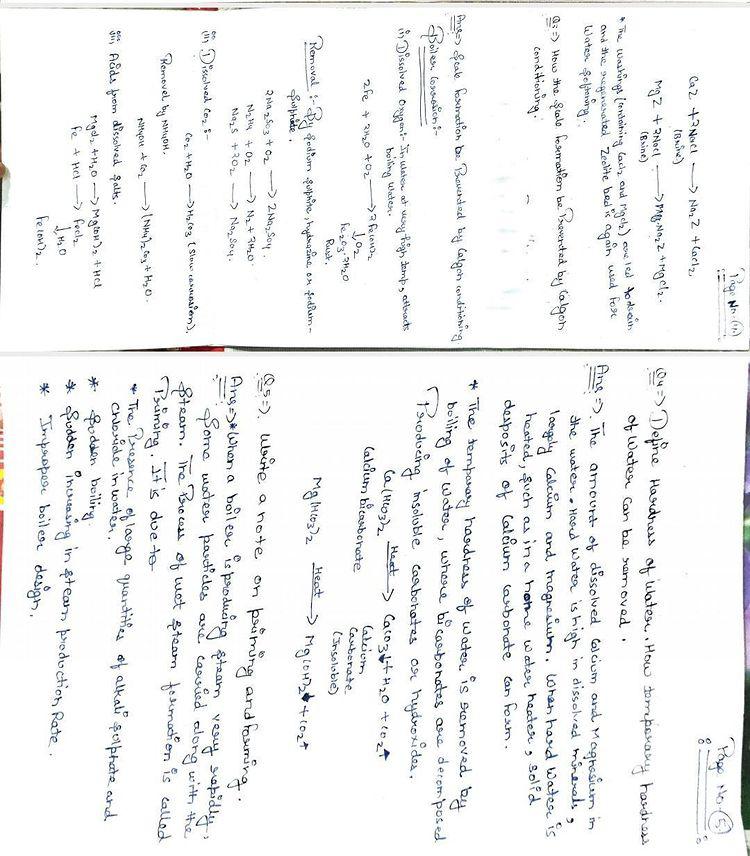 Page No. (4)
CaZ + 2NaCl → Na₂Z + CaCl₂
(Brine)
MgZ + 2NaCl → Na₂Z + MgCl₂.
(Brine)
* The washings (containing CaCl₂ and MgCl₂) are led to drain
and the regenerated Zeolite bed is again used for
Water softening.
Q3 ⇒ How the scale formation be Prevented by Calgon
conditioning.
Ans ⇒ Scale formation be Prevented by Calgon conditioning
Boiler Corrosion :-
i) Dissolved Oxygen: In water at very high temp, attracts
boiling water.
2Fe + 2H₂O + O₂ → 2Fe(OH)₂
↓ O₂
Fe₂O₃·2H₂O
Rust.
Removal :- By Sodium sulphite, hydrazine or sodium-
sulphite.
2Na₂SO₃ + O₂ → 2Na₂SO₄.
N₂H₄ + O₂ → N₂ + 2H₂O.
Na₂S + 2O₂ → Na₂SO₄.
ii) Dissolved CO₂ :-
CO₂ + H₂O → H₂CO₃ (Slow corrosion)
Removed by NH₄OH.
NH₄OH + CO₂ → (NH₄)₂CO₃ + H₂O.
iii) Acids from dissolved salts.
MgCl₂ + H₂O → Mg(OH)₂ + HCl
Fe + HCl → FeCl₂
↓ H₂O
Fe(OH)₂.
Page No. (5)
Q4 ⇒ Define Hardness of Water. How temporary hardness
of Water can be removed.
Ans ⇒ The amount of dissolved Calcium and Magnesium in
the water. Hard Water is high in dissolved minerals,
largely Calcium and magnesium. When hard water is
heated, such as in a home water heater, solid
deposits of Calcium Carbonate can form.
* The temporary hardness of Water is removed by
boiling of Water, where bicarbonates are decomposed
Producing insoluble carbonates or hydroxides.
Ca(HCO₃)₂ Heat → CaCO₃↓ + H₂O + CO₂↑
Calcium bicarbonate Calcium
Carbonate
(Insoluble)
Mg(HCO₃)₂ Heat → Mg(OH)₂↓ + CO₂↑
Q5 ⇒ Write a note on priming and foaming.
Ans ⇒ * When a boiler is producing steam very rapidly,
Some water particles are carried along with the
Steam. The Process of wet steam formation is called
Priming. It is due to
* The Presence of large quantities of alkali sulphate and
chloride in water.
* Sudden boiling
* Sudden increasing in steam production Rate.
* Improper boiler design.